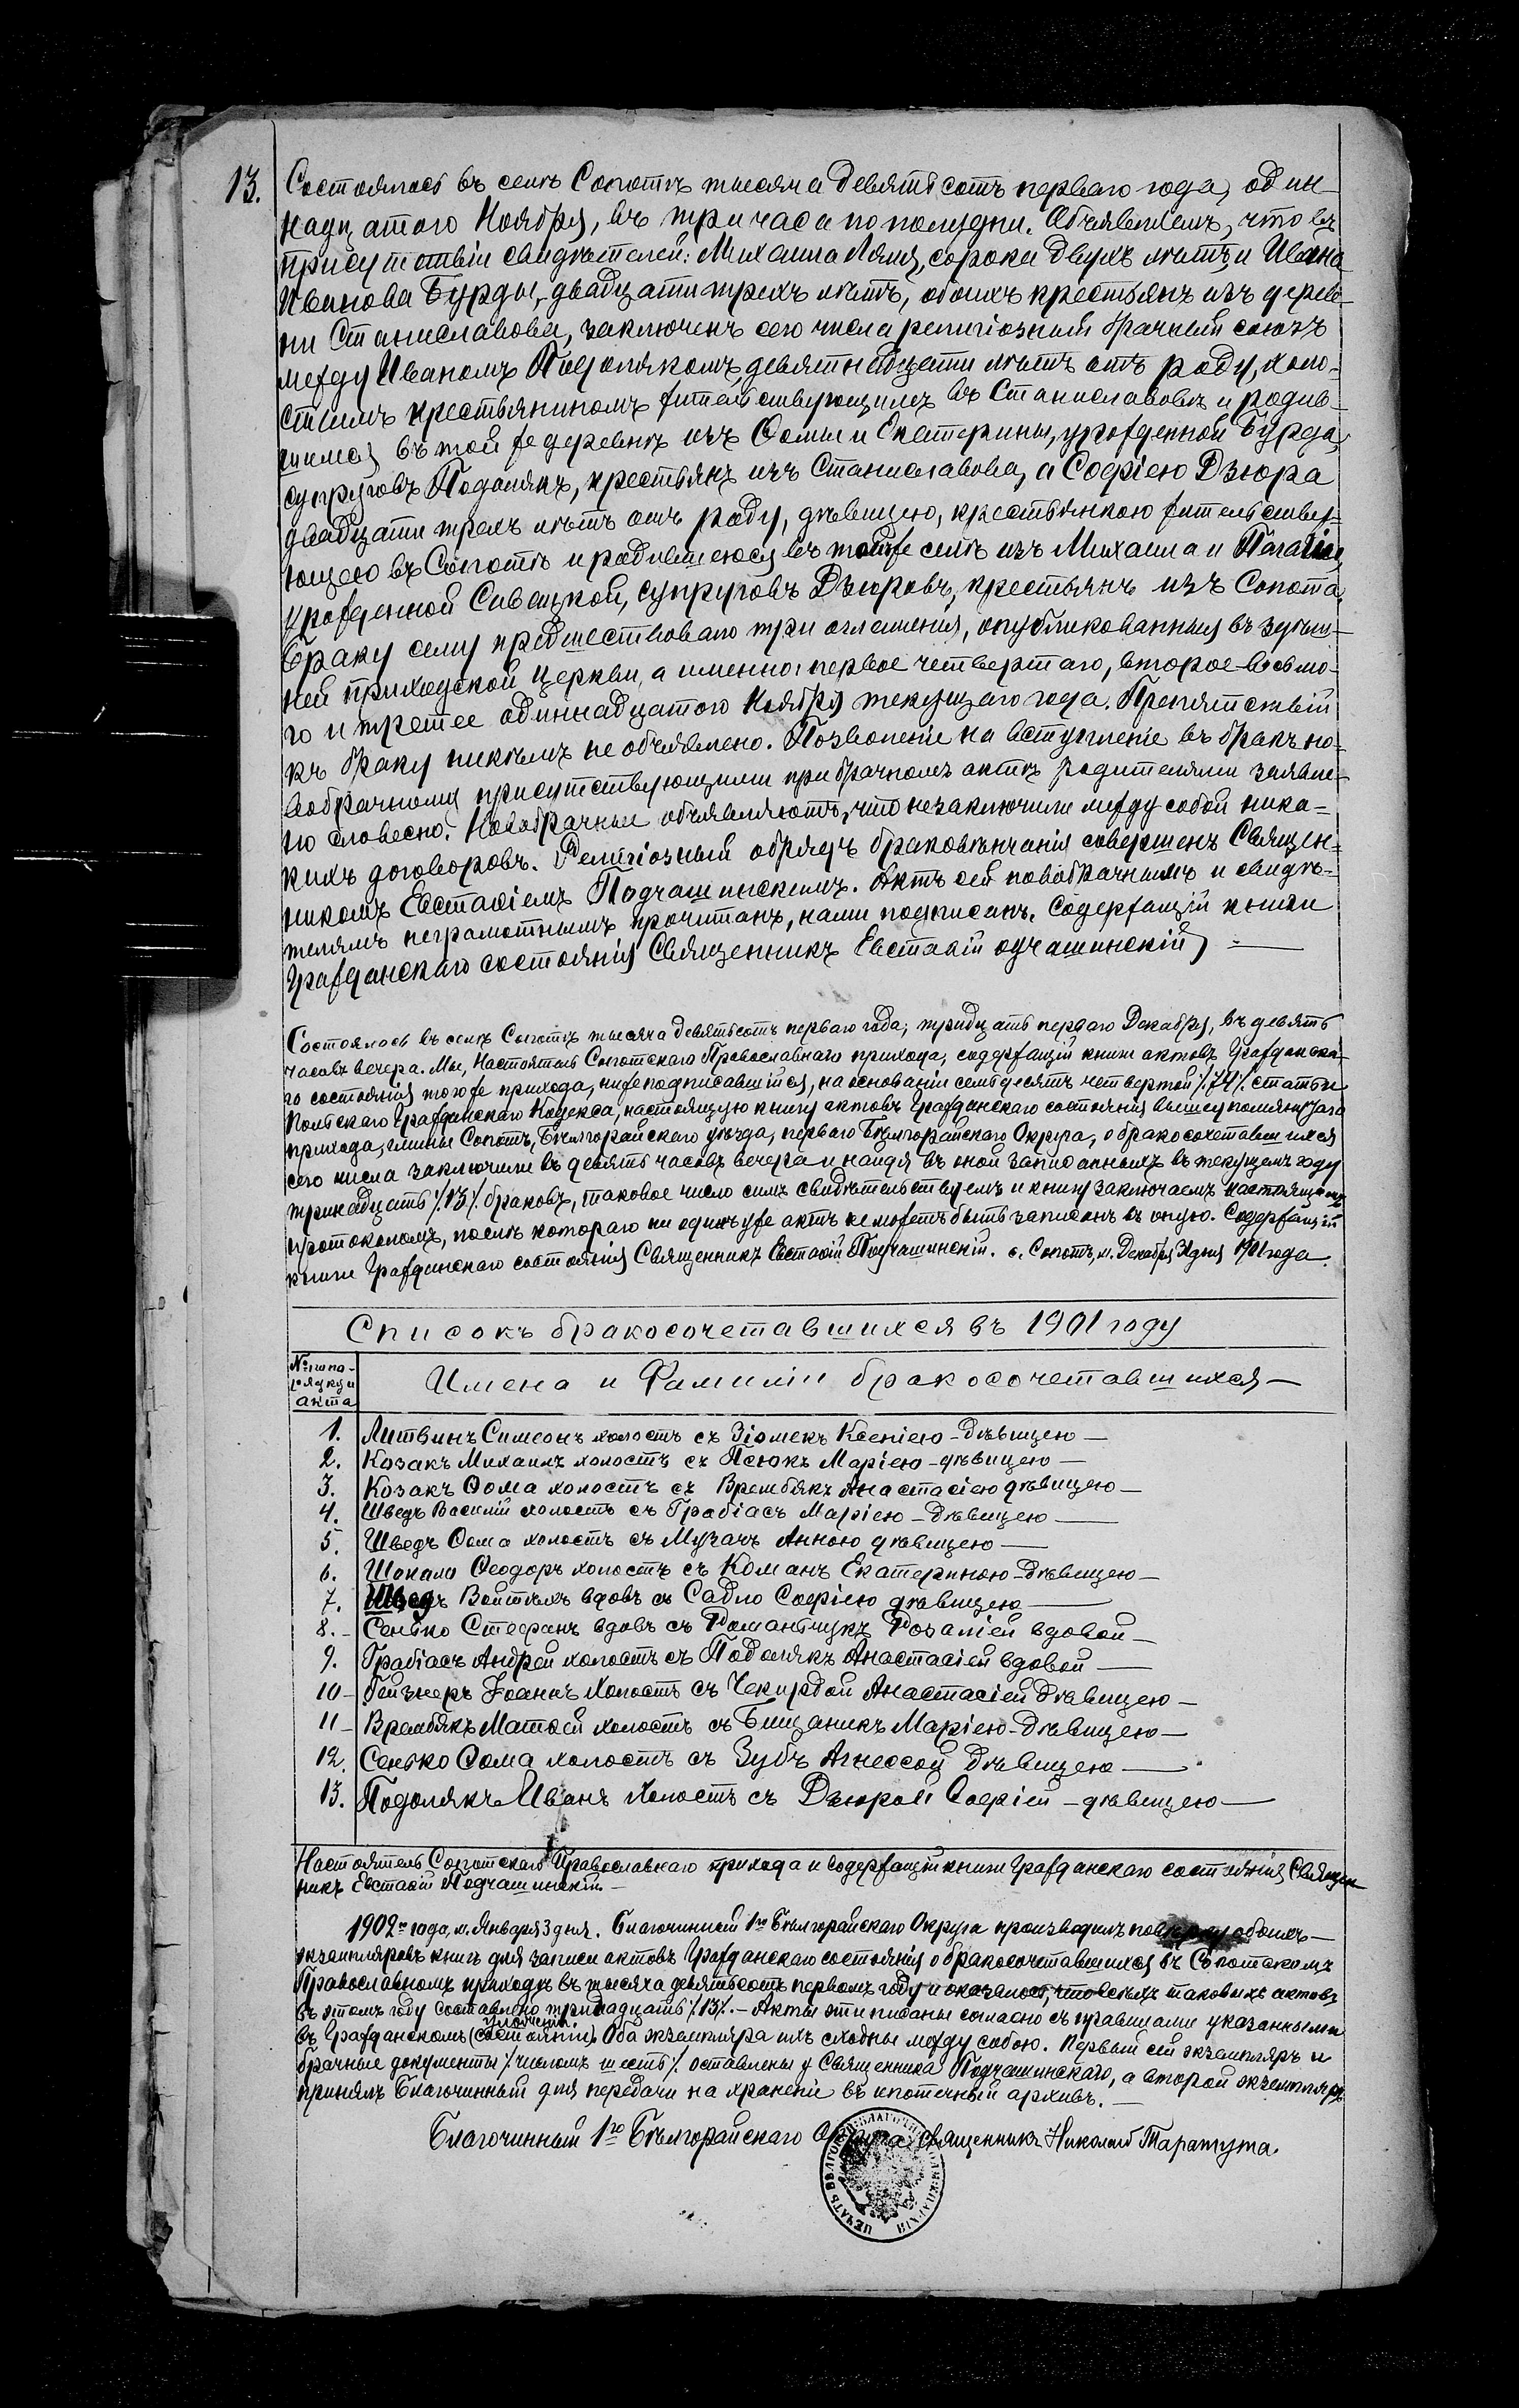 13. Состоялось въ селѣ Сопотѣ тысяча девятьсотъ перваго года, один-
надцатого Ноября, въ три часа по полудни. Объявляемъ, что въ
присутствіи свидѣтелей: Михаила Ляля, сорока двухъ лѣтъ, и Ивана
Иванова Бурды, двадцати трехъ лѣтъ, обоихъ крестьянъ изъ дерев-
ни Станиславова, заключенъ сего числа религіозный брачный союзъ
между Иваномъ Подолякомъ, девятнадцати лѣтъ отъ роду, холо-
стымъ крестьяниномъ жительствующимъ въ Станиславовѣ и родив-
шимся въ той же деревнѣ изъ Ѳомы и Екатерины, урожденной Бурда,
супруговъ Подолякъ, крестьянъ изъ Станиславова, а Софіею Дзюра
двадцати трехъ лѣтъ отъ роду, дѣвицею, крестьянкою жительству-
ющею въ Сопотѣ и родившеюся въ томъ же селѣ изъ Михаила и Пагагіи,
урожденной Савецкой, супруговъ Дзюровъ, крестьянъ изъ Сопота.
Браку сему предшествовало три оглашенія, опубликованныя въ здѣш-
ней приходской церкви, а именно: первое четвертаго, второе восьмо-
го и третее одиннадцатого Ноября текущаго года. Препятствій
къ браку никѣмъ не объявлено. Позволеніе на вступленіе въ бракъ но-
вобрачному присутствующими при брачномъ актѣ родителями заявле-
но словесно. Новобрачные объявляютъ, что незаключили между собой ника-
кихъ договоровъ. Религіозный обрядъ браковѣнчанія совершенъ Священ-
никомъ Евстаѳіемъ Подчашинскимъ. Актъ сей новобрачнымъ и свидѣ-
телямъ неграмотнымъ прочитанъ, нами подписанъ. Содержащій книги
Гражданскаго состоянія Священникъ Евстаѳій одчашинскій
Состоялось въ селѣ Сопотѣ тысяча девятьсотъ перваго года, тридцать перваго Декабря, въ девять
часовъ вечера. Мы, Настоятель Сопотскаго Православнаго прихода, содержащій книги актовъ Гражданска-
го состоянія того же прихода, нижеподписавшійся, на основаніи семьдесятъ четвертой /74/ статьи
Польскаго Гражданскаго Кодекса, настоящую книгу актовъ Гражданскаго состоянія вышеупомянутаго
прихода, гмины Сопотъ, Бѣлгорайскаго уѣзда, перваго Бѣлгорайскаго Округа, о бракосочетавшихся
сего числа заключили въ девять часовъ вечера и найдя въ оной записанныхъ въ текущемъ году
тринадцать /13/ браковъ, таковое число симъ свидѣтельствуемъ и книгу заключаемъ настоящимъ
протоколомъ, послѣ котораго ни единъ уже актъ не можетъ быть записанъ въ оную. Содержащій
книги Гражданскаго состоянія Священникъ Евстаѳій Подчашинскій. с. Сопотъ, м. Декабря 31 дня 1901 года.
Списокъ бракосочетавшихся въ 1901 году
№ по
порядку
акта
Имена и Фамиліи бракосочетавшихся
1. Литвинъ Симеонъ холостъ съ Зіомекъ Ксеніею - дѣвицею
2. Козакъ Михаилъ холостъ съ Псюкъ Маріею - дѣвицею
3. Козакъ Ѳома холостъ съ Врембякъ Анастасіею дѣвицею
4. Шведъ Василій холостъ съ Грабіасъ Маріею - дѣвицею
5. Шведъ Ѳома холостъ съ Музачъ Анною дѣвицею
6. Шокало Ѳеодоръ холостъ съ Команъ Екатериною - дѣвицею
7. Шведъ Войтѣхъ вдовъ съ Садло Софіею дѣвицею
8. Сенько Стефанъ вдовъ съ Романчукъ Розаліей вдовой
9. Грабіасъ Андрей холостъ съ Подолякъ Анастасіей вдовой
10 Гейзнеръ Іоаннъ Холостъ съ Чекирдой Анастасіей дѣвицею
11 Врембякъ Матѳей холостъ съ Бищаникъ Маріею - дѣвицею
12. Сенько Ѳома холостъ съ Зубъ Агнессой дѣвицею
13. Подолякъ Иванъ Холостъ съ Дзюрой Софіей - дѣвицею
Настоятель Сопотскаго Православнаго прихода и содержащій книги Гражданскаго состоянія Священ-
никъ Евстаѳій Подчашинскій
1902го года, м. Января 3 дня. Благочинный 1го Бѣлгорайскаго Округа производилъ повѣрку обоихъ
экземпляровъ книгъ для записи актовъ Гражданскаго состоянія о бракосочетавшихся въ Сопотскомъ
Православномъ приходѣ въ тысяча девятьсотъ первомъ году и оказалось, что всѣхъ таковыхъ актовъ
въ этомъ году составлено тринадцать /13/. - Акты эти писаны согласно съ правилами указанными
въ Гражданскомъ (состояніи) уложеніи. Оба экземпляра ихъ сходны между собою. Первый сей экземпляръ и
брачные документы /числомъ шесть/ оставлены у Священника Подчашинскаго, а второй экземпляръ
принялъ Благочинный для передачи на храненіе въ ипотечный архивъ.
Благочинный 1го Бѣлгорайскаго Округа, Священникъ Николай Таратута.